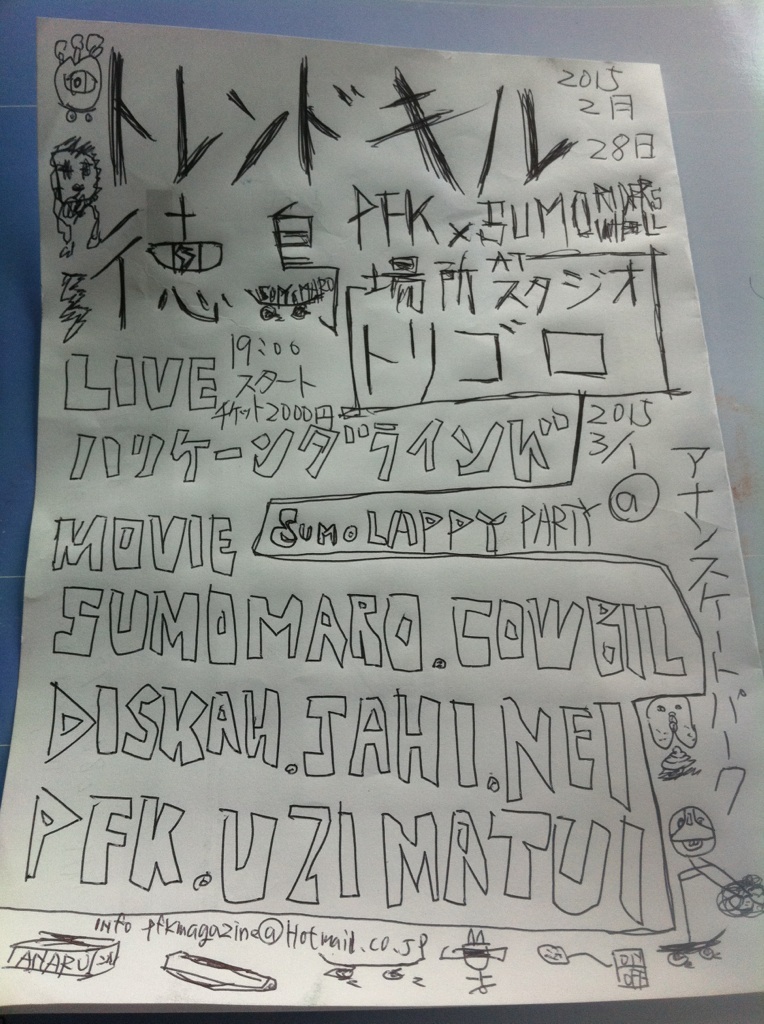 トレンドキル
2015
2月
28日
徳島
PFK × SUMO RIDERS WHEEL
SUMOMARO
場所 AT スタジオ
トリゴロ
LIVE
19:00
スタート
チケット2000円
ハリケーンダラインズ
2015
3/1
@
アナンスケートパーク
MOVIE
SUMO LAPPY PARTY
SUMOMARO.COWBIL
DISKAH.JAHI.NEI
PFK.UZIMATUI
INFO pfkmagazine@Hotmail.co.jp
ANARU